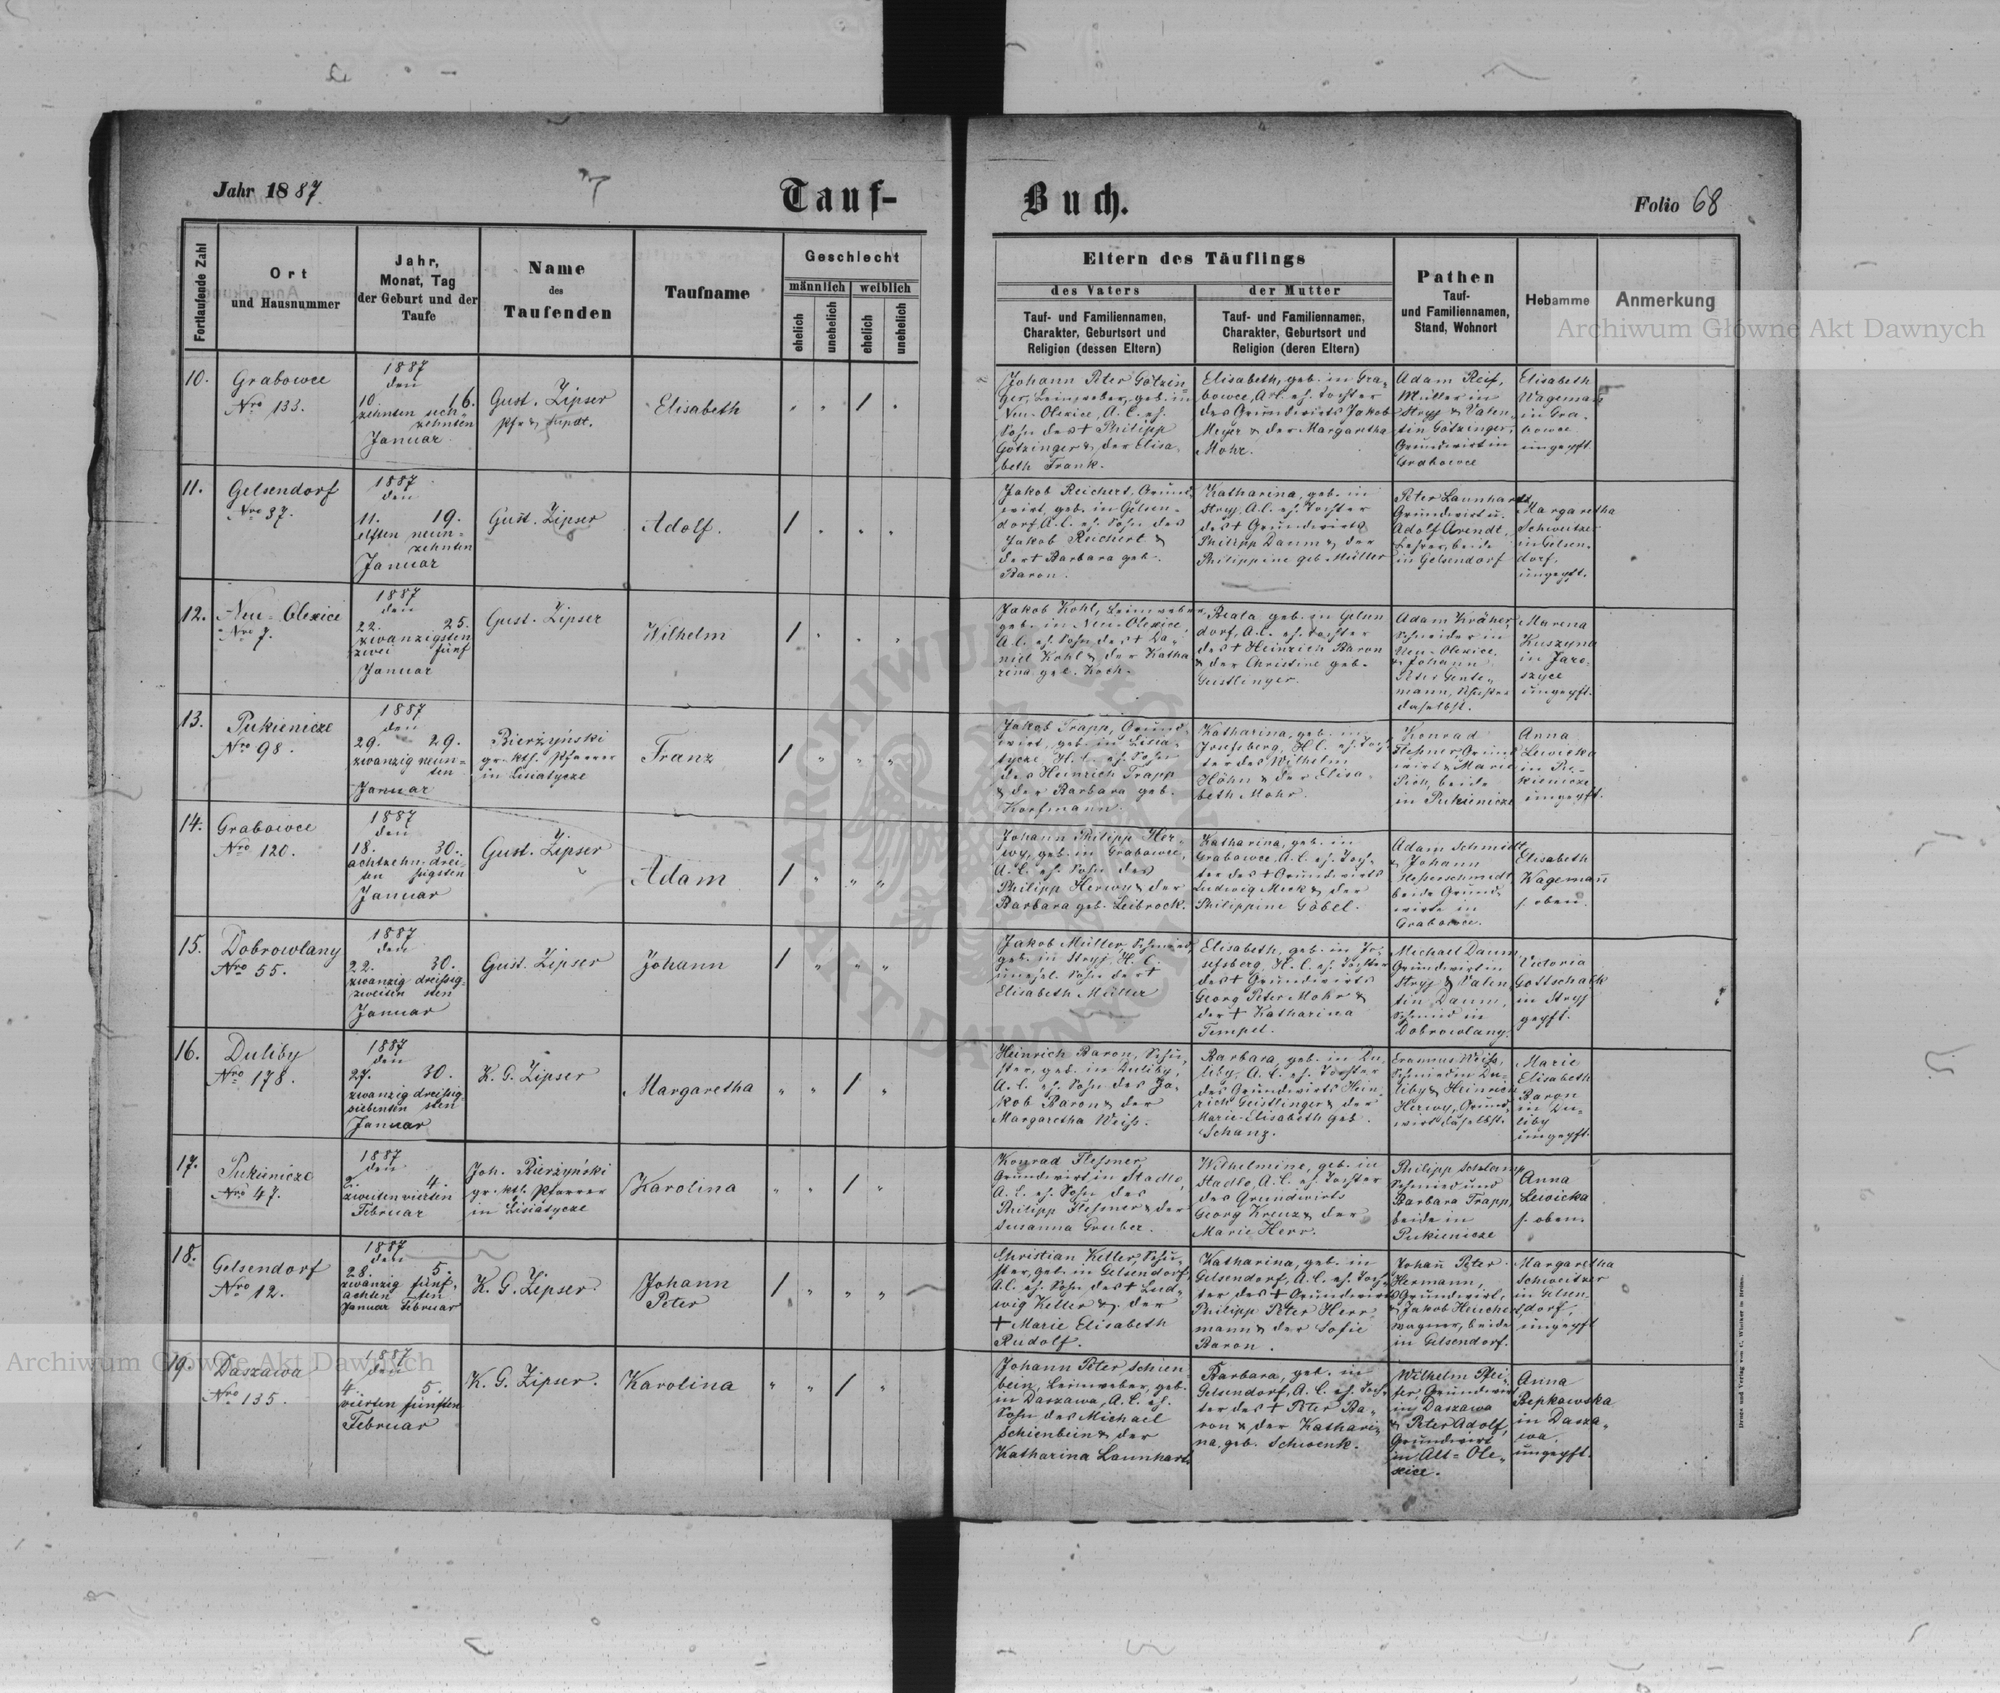 Jahr 1887
Tauf-
Buch.
Folio 68
Fortlaufende Zahl
Ort
und Hausnummer
Jahr,
Monat, Tag
der Geburt und der
Taufe
Name
des
Taufenden
Taufname
Geschlecht
männlich
weiblich
ehelich
unehelich
ehelich
unehelich
Eltern des Täuflings
des Vaters
der Mutter
Tauf- und Familiennamen,
Charakter, Geburtsort und
Religion (dessen Eltern)
Tauf- und Familiennamen,
Charakter, Geburtsort und
Religion (deren Eltern)
Pathen
Tauf-
und Familiennamen,
Stand, Wohnort
Hebamme
Anmerkung
Archiwum Główne Akt Dawnych
10.
Grabowce
Nro 133.
1887
den
10. 16.
zehnten sech-
zehnten
Januar
Gust. Zipser
Elisabeth
Johann Peter Götzin-
ger, Leinweber, geb. in
Neu-Olexice, A.C. eh.
Sohn des † Philipp
Götzinger & der Elisa
beth Frank.
Elisabeth, geb. in Gra-
bowce, A.C. eh. Tochter
des Grundwirts Jakob
Meyer & der Margaretha
Mohr.
Adam Reif,
Müller in
Stryj & Valen-
tin Götzinger,
Grundwirt in
Grabowce
Elisabeth
Wagemañ
in Gra-
bowce
ungepft.
11.
Gelsendorf
Nro 37.
1887
den
11. 19.
elften neun-
zehnten
Januar
Gust. Zipser
Adolf.
Jakob Reichert, Grund
wirt, geb. in Gelsen-
dorf A.C. eh. Sohn des
Jakob Reichert &
der † Barbara geb.
Baron.
Katharina, geb. in
Stryj, A.C. eh. Tochter
des † Grundwirts
Philipp Daum & der
Philippine geb. Müller
Peter Launhardt
Grundwirt u.
Adolf Arendt,
Lehrer, beide
in Gelsendorf
Margaretha
Schweitzer
in Gelsen-
dorf,
ungepft.
12.
Neu-Olexice
Nro 7.
1887
den
22. 25.
zwanzigsten
zwei fünf
Januar
Gust. Zipser
Wilhelm
Jakob Kohl, Leinweber,
geb. in Neu-Olexice,
A.C. eh. Sohn des † Da-
niel Kohl & der Katha
rina geb. Koch.
Beata geb. in Gelsen
dorf, A.C. eh. Tochter
des † Heinrich Baron
& der Christine geb.
Geistlinger.
Adam Krämer,
Schneider in
Neu-Olexice,
& Johann
Peter Gente-
mann,
daselbst.
Marena
Kuszyna
in Jaro-
szyce
ungepft.
13.
Pukienicze
Nro 98.
1887
den
29. 29.
zwanzig neun-
ten
Januar
Bierżyński
gr. kth. Pfarrer
in Lisiatycze
Franz
Jakob Trapp, Grund-
wirt, geb. in Lisia-
tycze H.C. eh. Sohn
des Heinrich Trapp
& der Barbara geb.
Korfmann.
Katharina, geb. in
Josefsberg, H.C. eh. Toch
ter des Wilhelm
Höhn & der Elisa
beth Mohr.
Konrad
Flessner, Grund
wirt & Marie
beide
in Pukienicze
Anna
Lewicka
in Pu-
kienicze,
ungepft.
14.
Grabowce
Nro 120.
1887
den
18. 30.
achtzehn drei-
ten ssigsten
Januar
Gust. Zipser
Adam
Johann Philipp Her-
wy, geb. in Grabowce,
A.C. eh. Sohn des
Philipp Herwy & der
Barbara geb. Leibrock.
Katharina, geb. in
Grabowce, A.C. eh. Toch-
ter des † Grundwirts
Ludwig Merk & der
Philippine Göbel.
Adam Schmidt
& Johann
beide Grund-
wirte in
Grabowce.
Elisabeth
Wagemañ
s. oben.
15.
Dobrowlany
Nro 55.
1887
den
22. 30.
zwanzig dreissig-
zweiten sten
Januar
Gust. Zipser
Johann
Jakob Müller, Schmied,
geb. in Stryj, H.C.
unehel. Sohn der †
Elisabeth Müller
Elisabeth, geb. in Jo-
sefsberg, H.C. eh. Tochter
des † Grundwirts
Georg Peter Mohr &
der † Katharina
Tempel.
Michael Daum
Grundwirt in
Stryj & Valen
tin Daum,
Schmied in
Dobrowlany.
Victoria
Gottschalk
in Stryj
gepft.
16.
Duliby
Nro 178.
1887
den
27. 30.
zwanzig dreissig-
siebenten sten
Januar
K. G. Zipser
Margaretha
Heinrich Baron, Schu-
ster, geb. in Duliby,
A.C. eh. Sohn des Ja-
kob Baron & der
Margaretha Weiss.
Barbara, geb. in Du-
liby, A.C. eh. Tochter
des Grundwirts Hein-
rich Geistlinger & der
Marie-Elisabeth geb.
Schanz.
Erasmus Weiss,
Schmied in Du-
liby & Heinrich
Herwy, Grund-
wirt daselbst.
Marie
Elisabeth
Baron
in Du-
liby
ungepft.
17.
Pukienicze
Nro 47.
1887
den
2. 4.
zweiten vierten
Februar
Joh. Bierżyński
gr. ktl. Pfarrer
in Lisiatycze
Karolina
Konrad Flessner
Grundwirt in Stadlo,
A.C. eh. Sohn des
Philipp Flessner & der
Susanna Greiber.
Wilhelmine, geb. in
Stadlo, A.C. eh. Tochter
des Grundwirts
Georg Kreuz & der
Marie Herr.
Philipp Schlamp
Schmied und
Barbara Trapp,
beide in
Pukienicze
Anna
Lewicka
s. oben.
18.
Gelsendorf
Nro 12.
1887
den
28. 5.
zwanzig fünf-
achten ten
Januar Februar
K. G. Zipser.
Johann
Peter
Christian Keller, Schu-
ster, geb. in Gelsendorf,
A.C. eh. Sohn des † Lud-
wig Keller & der
† Marie Elisabeth
Rudolf.
Katharina, geb. in
Gelsendorf, A.C. eh. Toch-
ter des † Grundwirts
Philipp Peter Herr
mann & der Sofie
Baron.
Johañ Peter
Hermann,
Grundwirt,
& Jakob
wagner, beide
in Gelsendorf.
Margaretha
Schweitzer
in Gelsen-
dorf,
ungepft
19.
Daszawa
Nro 135.
1887
den
4. 5.
vierten fünften
Februar
K. G. Zipser.
Karolina
Johann Peter Schien-
bein, Leinweber, geb.
in Daszawa, A.C. eh.
Sohn des Michael
Schienbein & der
Katharina Launhart.
Barbara, geb. in
Gelsendorf, A.C. eh. Toch-
ter des † Peter Ba-
ron & der Kathari-
na, geb. Schwenk.
Wilhelm Pfei-
fer, Grundwirt
in Daszawa
& Peter Adolf,
Grundwirt
in Alt-Ole-
xice.
Anna
Bepkowska
in Dasza-
wa,
ungepft.
Archiwum Główne Akt Dawnych
ARCHIWUM GŁÓWNE
AKT DAWNYCH